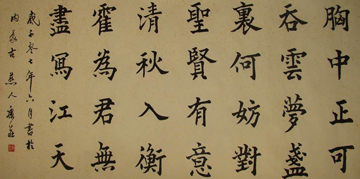 胸中正可
吞雲夢盞
裏何妨對
聖賢有意
清秋入衡
霍為君無
盡寫江天
年六月書於